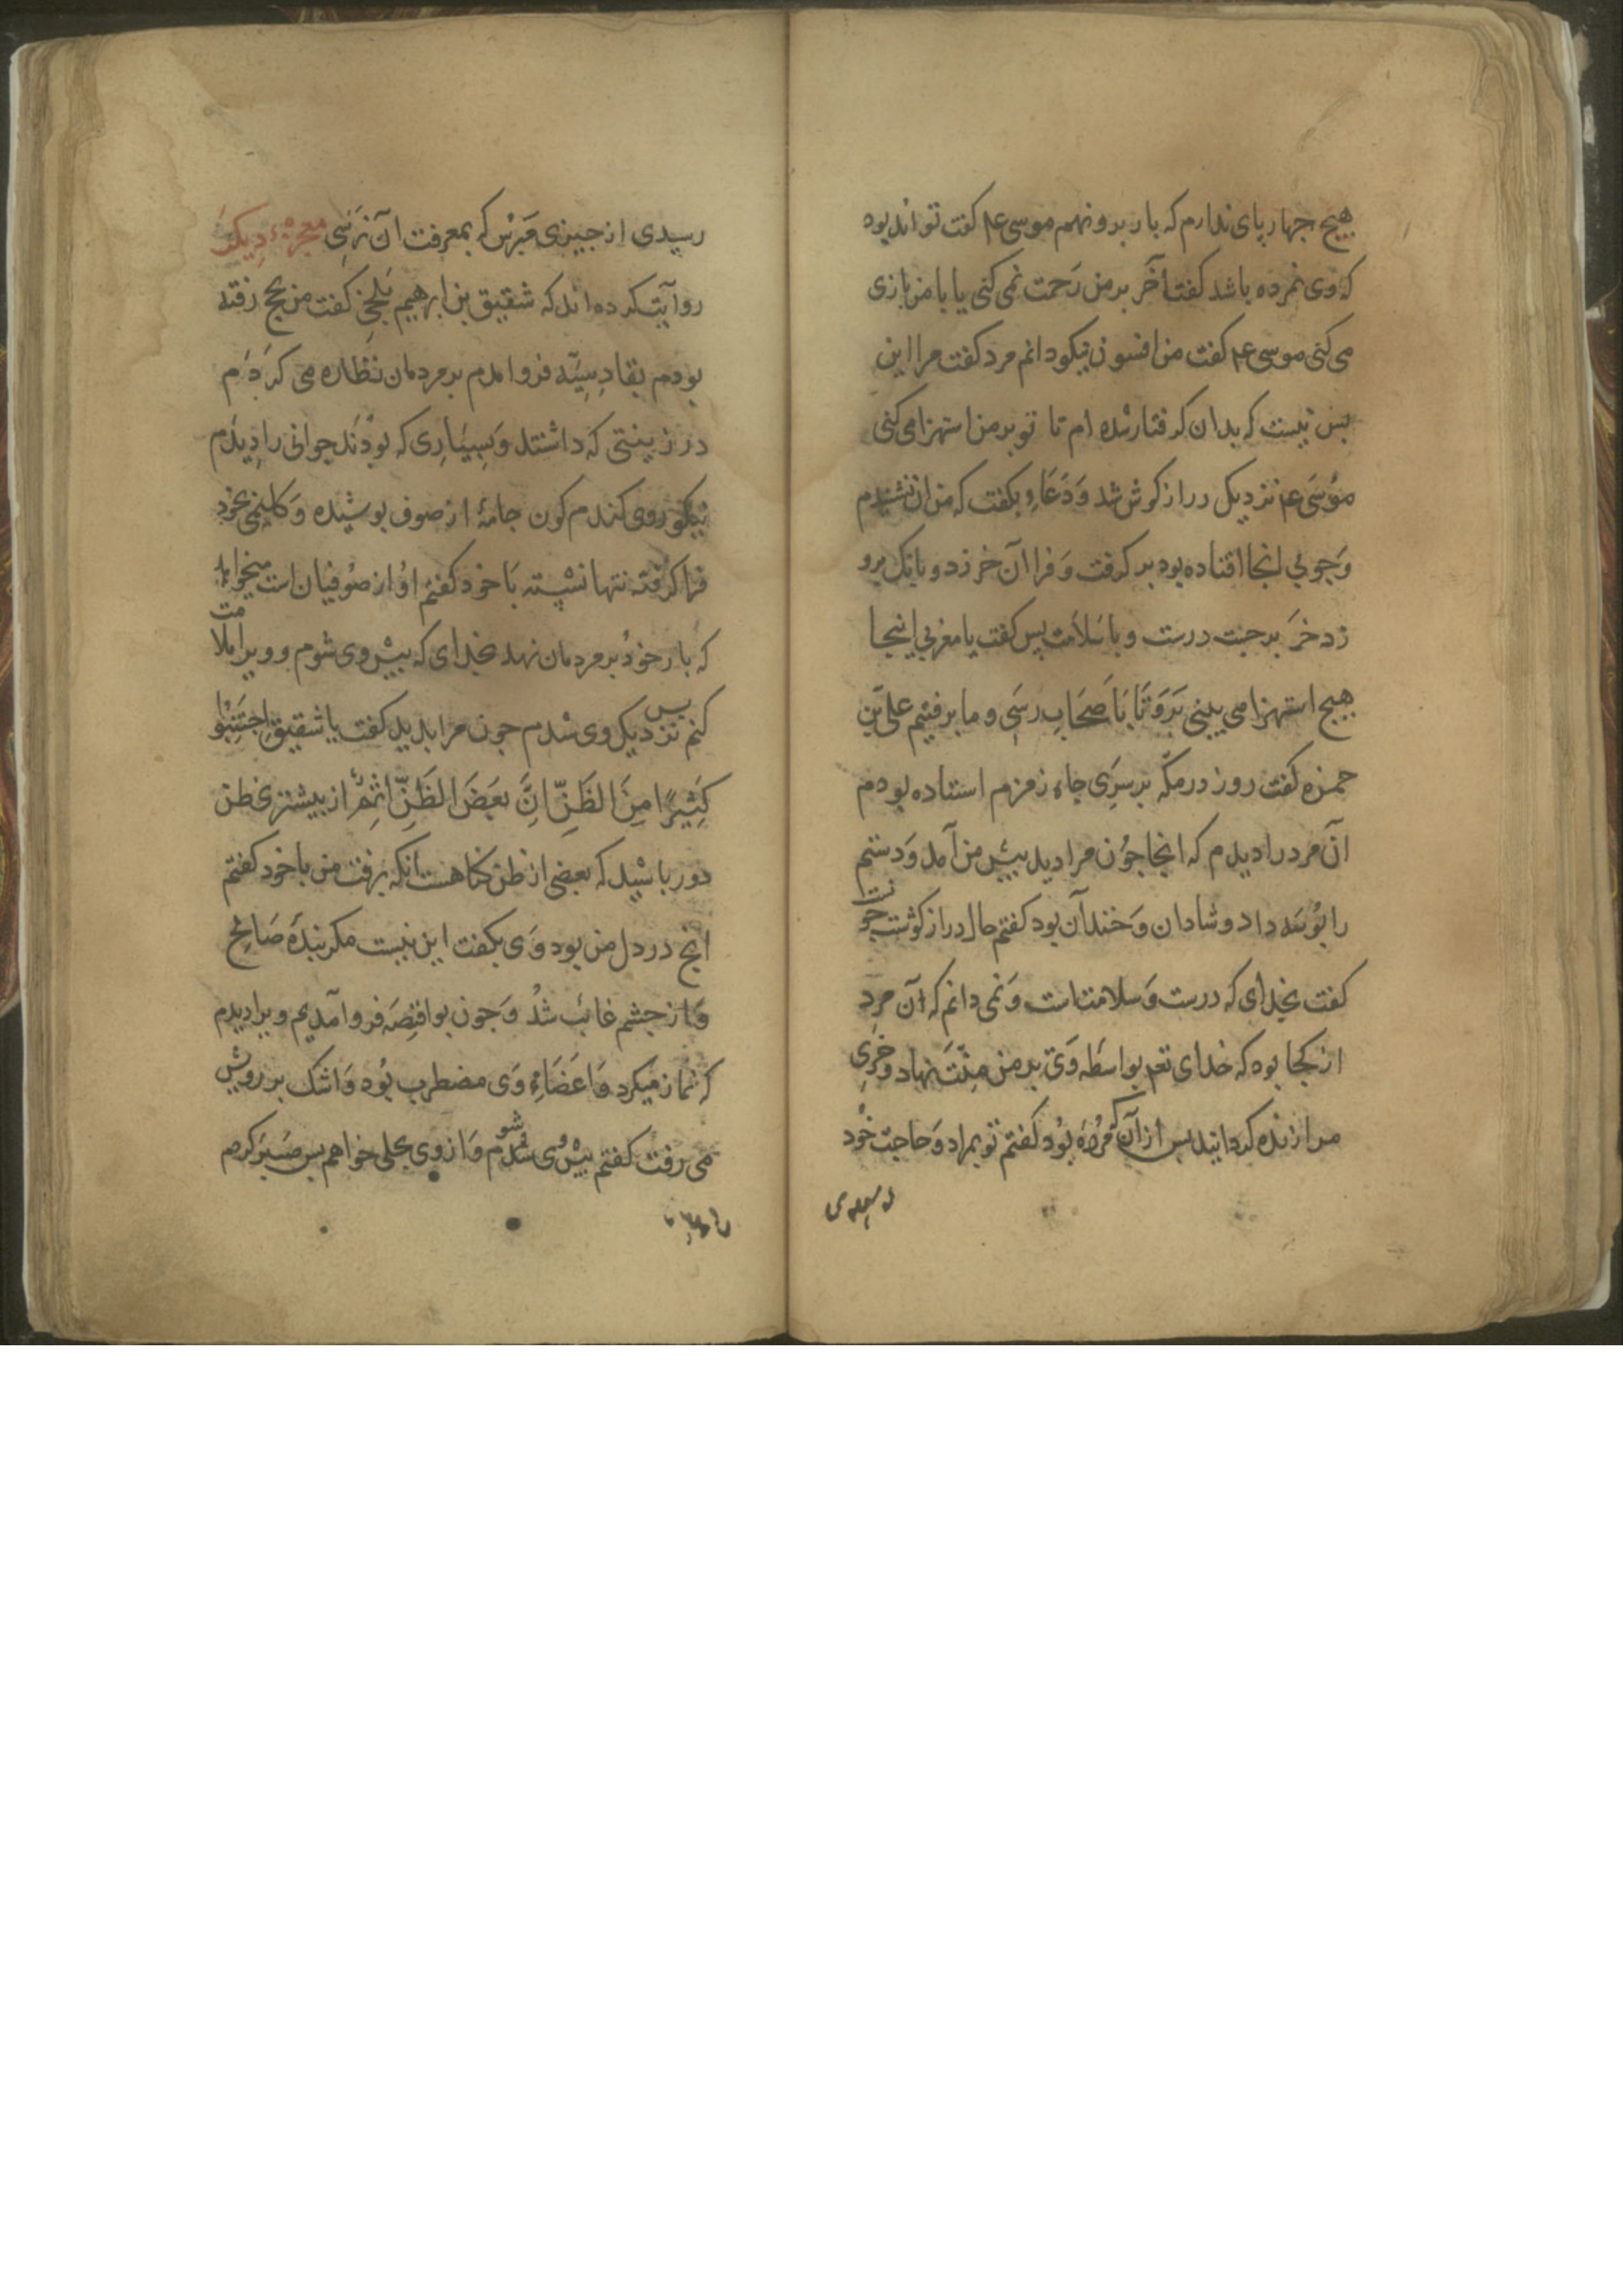 هیچ جهار پای ندارم که بار برو نهم موسی عم کفت تواند بود
که وی نمرده باشد کفت آخر بر من رحمت نمی کنی یا با من بازی
می کنی موسی عم کفت من افسون نیکو دانم مرد کفت مرا این
بس نیست که بدان کرفتار شده ام تا تو بر من استهزا می کنی
موسی عم نزدیک دراز کوش شد و دعاء بکفت که من آن نشنیدم
و جوبی انجا افتاده بود بر کرفت و فرا آن خر زد و بانک برو
زد خر بر جست درست و با سلامت پس کفت یا مغربی اینجا
هیچ استهزا می بینی برو تا با صحاب رسی و ما برفتیم علی بن
حمزه کفت روز در مکه بر سری جاه زمزم استاده بودم
آن مرد را دیدم که انجا جون مرا دید بیش من آمد و دستم
را بوسه داد و شادان و خندان بود کفتم حال دراز کوشت جونست
کفت بخدای که درست و سلامت است و نمی دانم که آن مرد
از کجا بود که خدای تعم بواسطه وی بر من منت نهاد و خری
مرا زنده کردانید بس از آن که مرده بود کفتم تو بمراد و حاجت خود
رسیدی
رسیدی از جیزی مبرس که بمعرفت آن نرسی معجزهٔ دیکر
روایت کرده اند که شقیق بن ابرهیم بلخی کفت من بحج رفته
بودم بقادسیه فرو امدم بر مردمان نظاره می کردم
در زینتی که داشتند و بسیاری که بودند جوانی را دیدم
نیکو روی کندم کون جامهٔ از صوف بوشیده و کلیمی بخود
فرا کرفته تنها نشسته با خود کفتم او از صوفیان است میخواهد
که بار خود بر مردمان نهد بخدای که بیش وی شوم و ویرا ملامت
کنم بس نزدیک وی شدم جون مرا بدید کفت یا شقیق اجتنبوا
کثیرا من الظن ان بعض الظن اثم از بیشتری ظن
دور باشید که بعضی از ظن کناهست انکه برفت من با خود کفتم
انج در دل من بود وی بکفت این نیست مکر بندهٔ صالح
و از جشم غائب شد و جون بواقصه فرو آمدیم ویرا دیدم
که نماز میکرد و اعضاء وی مضطرب بود و اشک بر رویش
می رفت کفتم بیش وی شوم و از وی بحلی خواهم بس صبر کردم